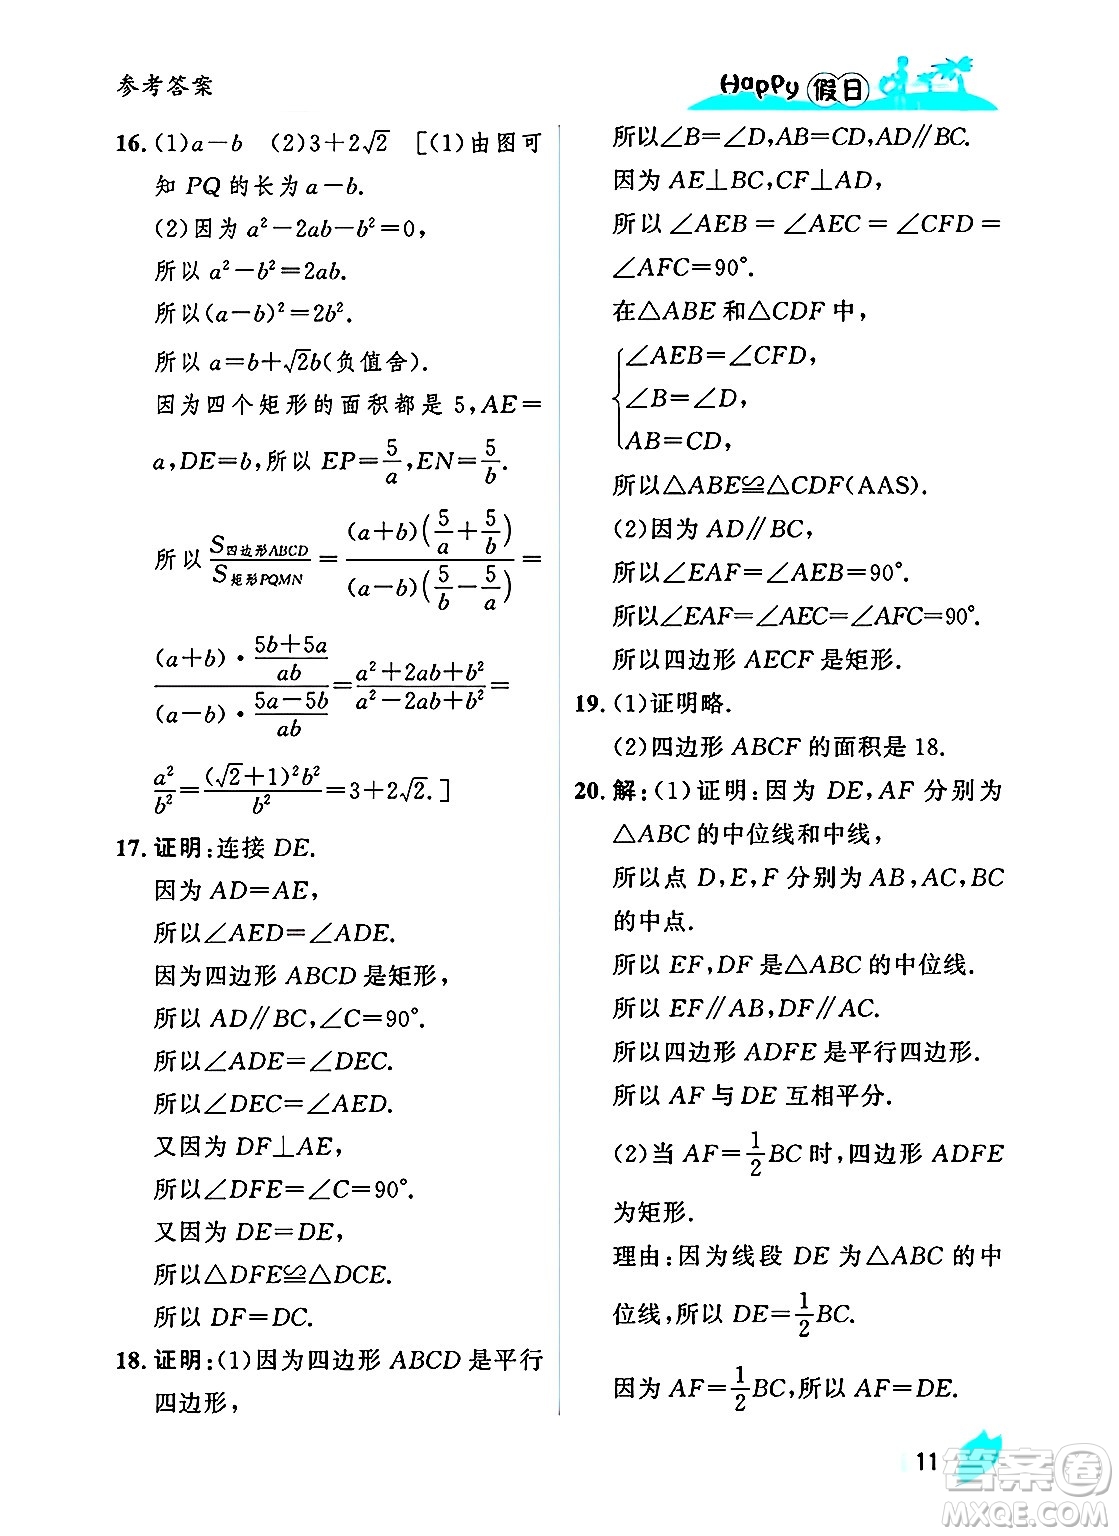 参考答案
Happy 假日
16. (1)a－b　(2)3＋2√2　[(1)由图可
知 PQ 的长为 a－b.
(2)因为 a²－2ab－b²＝0,
所以 a²－b²＝2ab.
所以(a－b)²＝2b².
所以 a＝b＋√2b(负值舍).
因为四个矩形的面积都是 5,AE＝
a,DE＝b,所以 EP＝5/a,EN＝5/b.
所以 S四边形ABCD/S矩形PQMN＝(a＋b)(5/a＋5/b)/(a－b)(5/b－5/a)＝
(a＋b)·(5b＋5a)/ab/(a－b)·(5a－5b)/ab＝(a²＋2ab＋b²)/(a²－2ab＋b²)＝
a²/b²＝(√2＋1)²b²/b²＝3＋2√2.]
17. 证明:连接 DE.
因为 AD＝AE,
所以∠AED＝∠ADE.
因为四边形 ABCD 是矩形,
所以 AD∥BC,∠C＝90°.
所以∠ADE＝∠DEC.
所以∠DEC＝∠AED.
又因为 DF⊥AE,
所以∠DFE＝∠C＝90°.
又因为 DE＝DE,
所以△DFE≌△DCE.
所以 DF＝DC.
18. 证明:(1)因为四边形 ABCD 是平行
四边形,
所以∠B＝∠D,AB＝CD,AD∥BC.
因为 AE⊥BC,CF⊥AD,
所以∠AEB＝∠AEC＝∠CFD＝
∠AFC＝90°.
在△ABE 和△CDF 中,
∠AEB＝∠CFD,
∠B＝∠D,
AB＝CD,
所以△ABE≌△CDF(AAS).
(2)因为 AD∥BC,
所以∠EAF＝∠AEB＝90°.
所以∠EAF＝∠AEC＝∠AFC＝90°.
所以四边形 AECF 是矩形.
19. (1)证明略.
(2)四边形 ABCF 的面积是 18.
20. 解:(1)证明:因为 DE,AF 分别为
△ABC 的中位线和中线,
所以点 D,E,F 分别为 AB,AC,BC
的中点.
所以 EF,DF 是△ABC 的中位线.
所以 EF∥AB,DF∥AC.
所以四边形 ADFE 是平行四边形.
所以 AF 与 DE 互相平分.
(2)当 AF＝1/2BC 时,四边形 ADFE
为矩形.
理由:因为线段 DE 为△ABC 的中
位线,所以 DE＝1/2BC.
因为 AF＝1/2BC,所以 AF＝DE.
11
答案圈
MXQE.COM